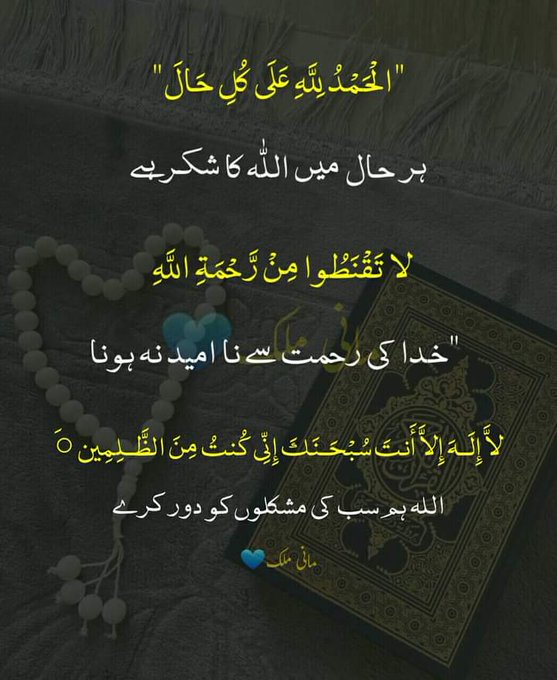 "الْحَمْدُ لِلَّهِ عَلَى كُلِ حَالَ"
ہر حال میں اللہ کا شکر ہے
لا تَقْنَطُوا مِنْ رَّحْمَةِ اللَّهِ
مانی ملک
"خدا کی رحمت سے نا امید نہ ہونا
لاَّ إِلَـهَ إِلاَّ أَنتَ سُبْحَـنَكَ إِنِّى كُنتُ مِنَ الظَّـلِمِين َ
اللہ ہم سب کی مشکلوں کو دور کرے
مانی ملک💙